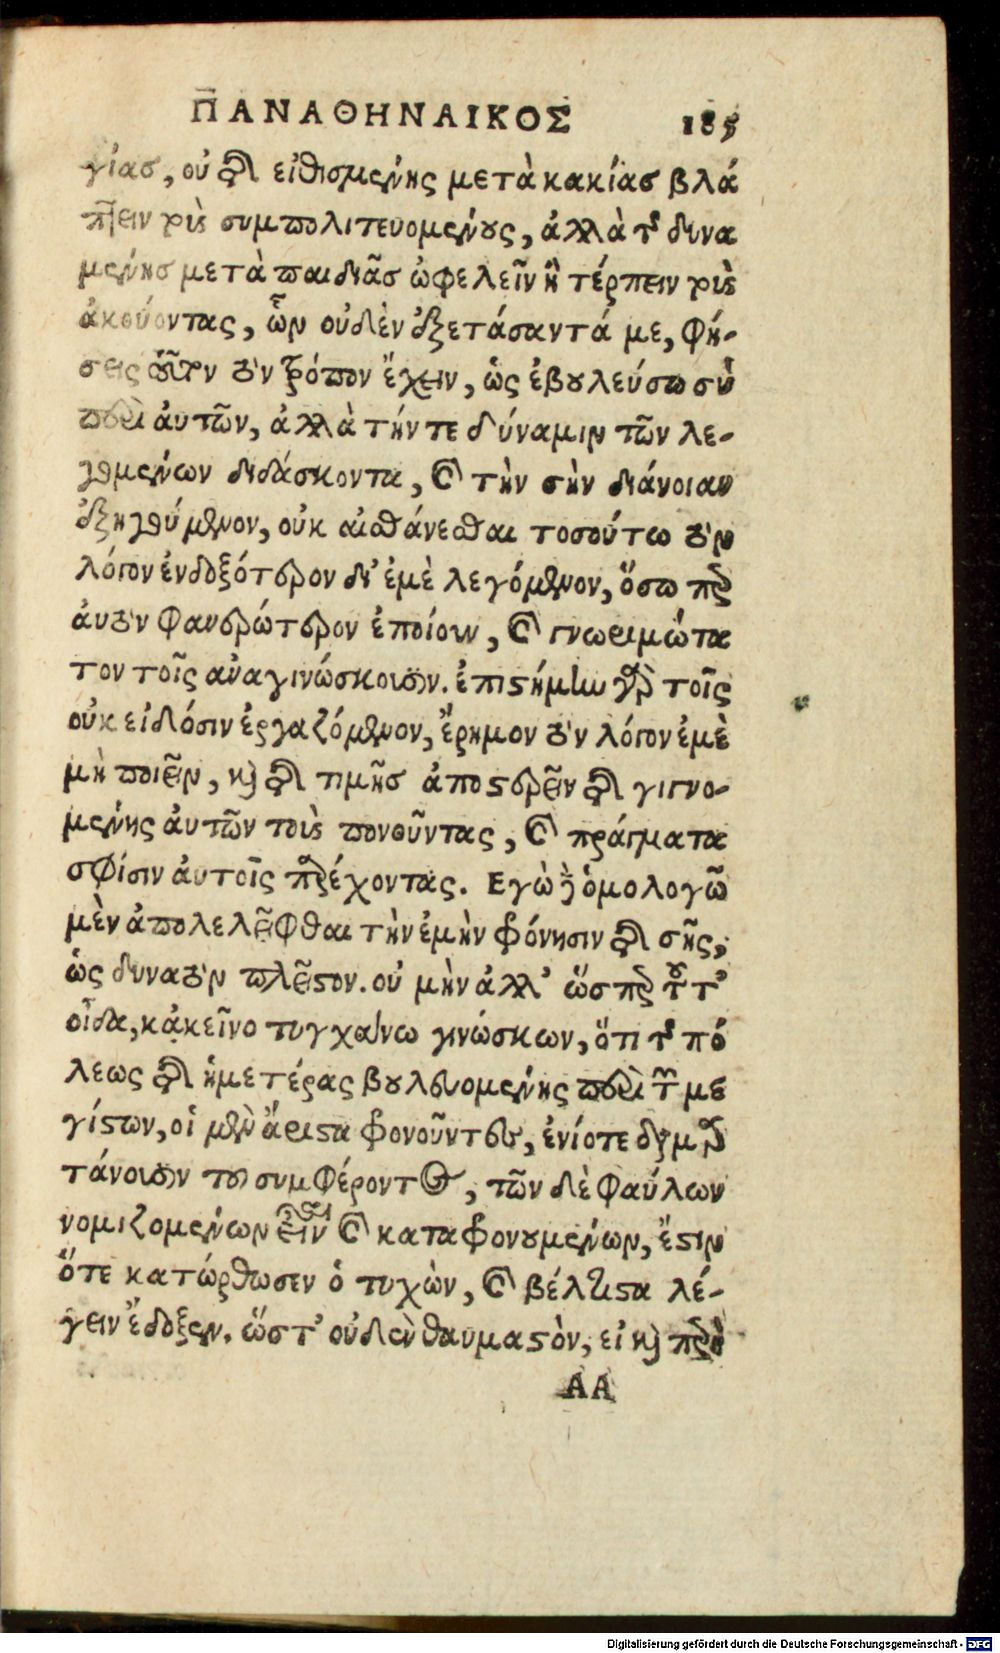 ΠΑΝΑΘΗΝΑΙΚΟΣ 185
γίας, οὐ τῆς εἰθισμένης μετὰ κακίας βλά
πτειν τοὺς συμπολιτευομένους, ἀλλὰ τῆς δυνα
μένης μετὰ παιδιᾶς ὠφελεῖν ἢ τέρπειν τοὺς
ἀκούοντας, ὧν οὐδὲν ἐξετάσαντά με, φή-
σεις τοῦτον τὸν τρόπον ἔχειν, ὡς ἐβουλεύσω σὺ
περὶ αὐτῶν, ἀλλὰ τήν τε δύναμιν τῶν λε-
γομένων διδάσκοντα, καὶ τὴν σὴν διάνοιαν
ἐξηγούμενον, οὐκ αἰσθάνεσθαι τοσούτω τὸν
λόγον ἐνδοξότερον δι' ἐμὲ λεγόμενον, ὅσω περ
αὐτὸν φανερώτερον ἐποίουν, καὶ γνωριμώτα
τον τοῖς ἀναγινώσκουσιν. ἐπιστήμην γὰρ τοῖς
οὐκ εἰδόσιν ἐργαζόμενον, ἔρημον τὸν λόγον ἐμὲ
μὴ ποιεῖν, καὶ τῆς τιμῆς ἀποστερεῖν τῆς γιγνο-
μένης αὐτῶν τοὺς πονοῦντας, καὶ πράγματα
σφίσιν αὐτοῖς παρέχοντας. Εγὼ δὲ ὁμολογῶ
μὲν ἀπολελεῖφθαι τὴν ἐμὴν φρόνησιν τῆς σῆς,
ὡς δυνατὸν πλεῖστον. οὐ μὴν ἀλλ' ὥσπερ τοῦτ'
οἶδα, κἀκεῖνο τυγχάνω γινώσκων, ὅτι τῆς πό
λεως τῆς ἡμετέρας βουλευομένης περὶ τῶν με
γίστων, οἱ μὲν ἄριστα φρονοῦντες, ἐνίοτε διαμαρ
τάνουσιν τοῦ συμφέροντος, τῶν δὲ φαύλων
νομιζομένων εἶναι καὶ καταφρονουμένων, ἔστιν
ὅτε κατώρθωσεν ὁ τυχὼν, καὶ βέλτιστα λέ-
γειν ἔδοξεν. ὥστ' οὐδὲν θαυμαστὸν, εἰ καὶ περὶ
AA
Digitalisierung gefördert durch die Deutsche Forschungsgemeinschaft - DFG